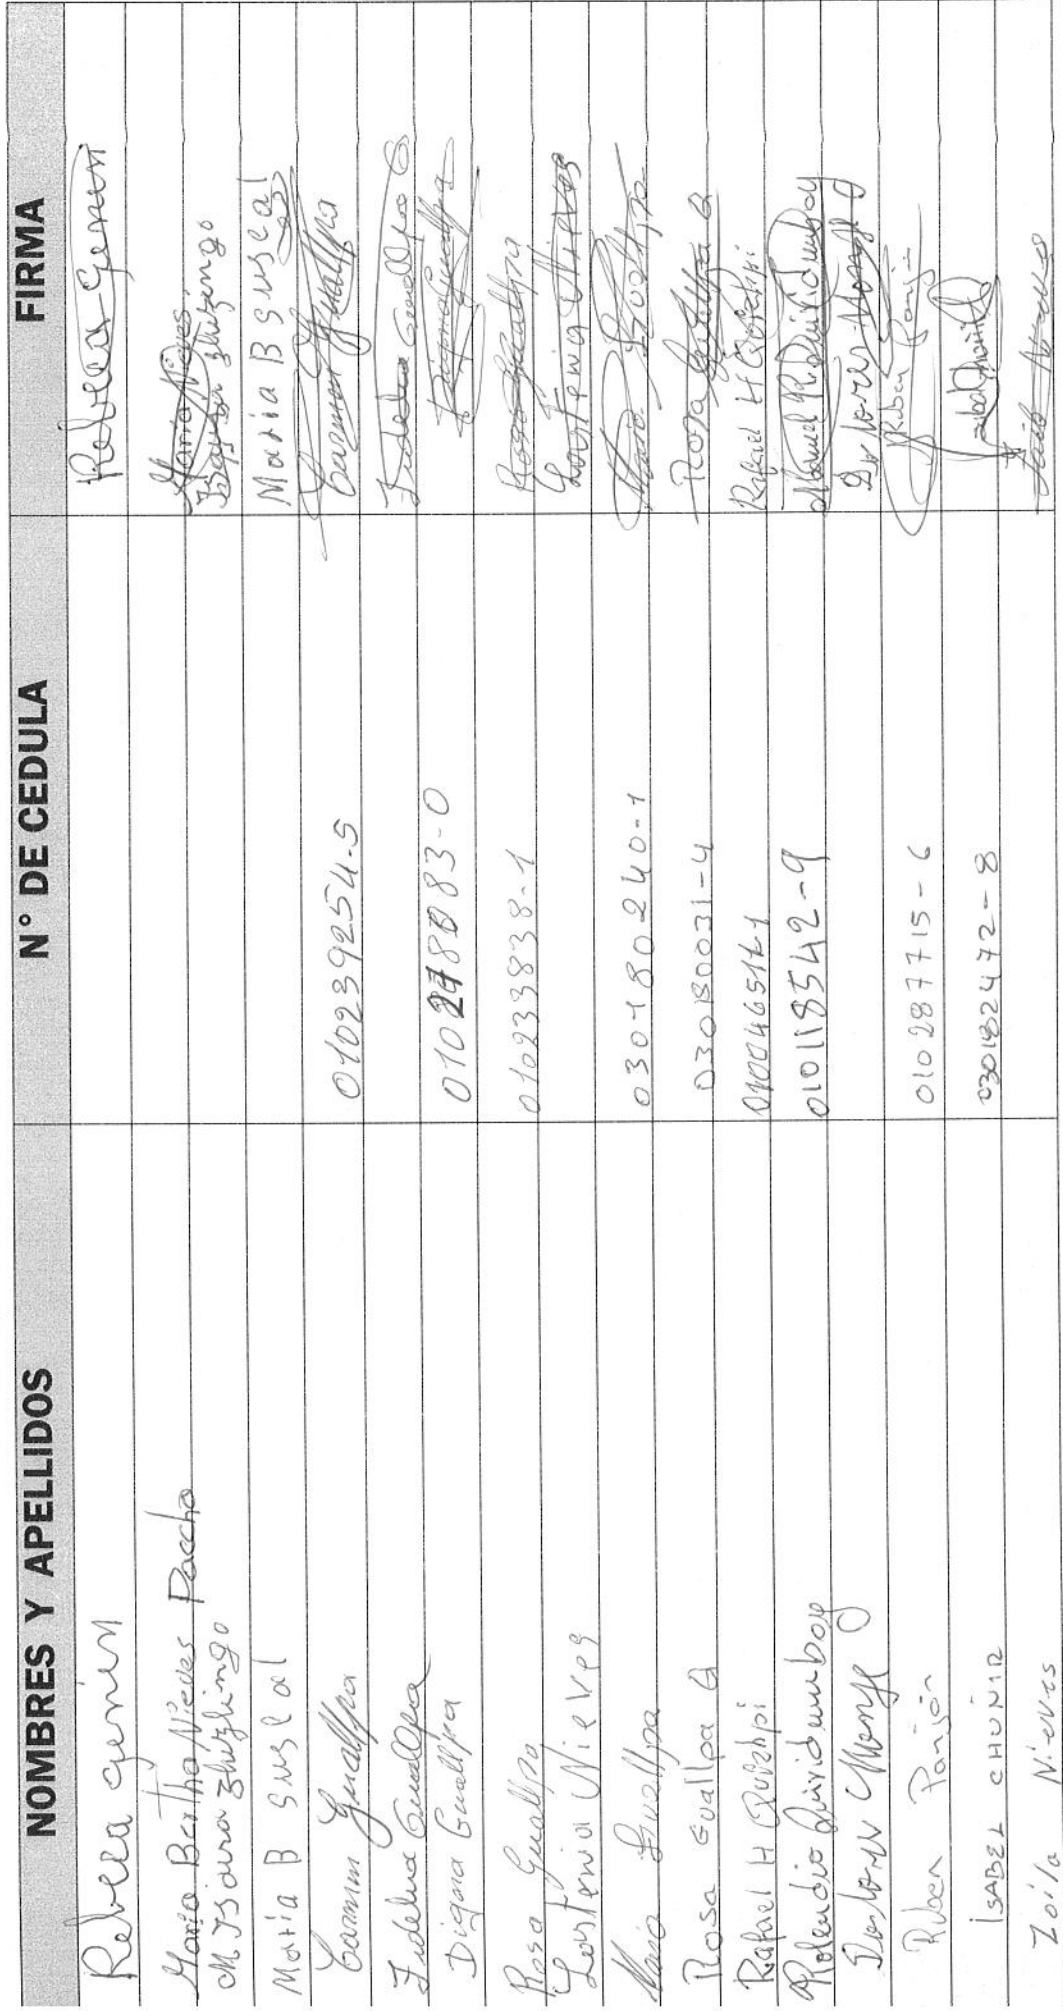 NOMBRES Y APELLIDOS N° DE CEDULA FIRMA
Rebeca Genen Rebeca Genen
Maria Bertha Nieves Paccha Maria Nieves
M Isaura Zhuzhingo Isaura Zhuzingo
Maria B Guscal Maria B Guscal
Carmen Guallpa 010239254-5 Carmen Guallpa
Fidelina Guallpa
Digna Guallpa 010278083-0 Digna Guallpa
Rosa Guallpa 010233838-1 Rosa Guallpa
Nieves Nieves
Maria Guallpa 030180240-1 Maria
Rosa Guallpa G 030180031-4 Rosa Guallpa G
Rafael H Quizhpi Rafael H Quizhpi
Rolendio Quiridumbay 010118542-9 Manuel R Quiridumbay
Ruben Panjón 010287715-6 Ruben Panjón
ISABEL CHUÑIR 030182472-8
Zoila Nieves Nieves